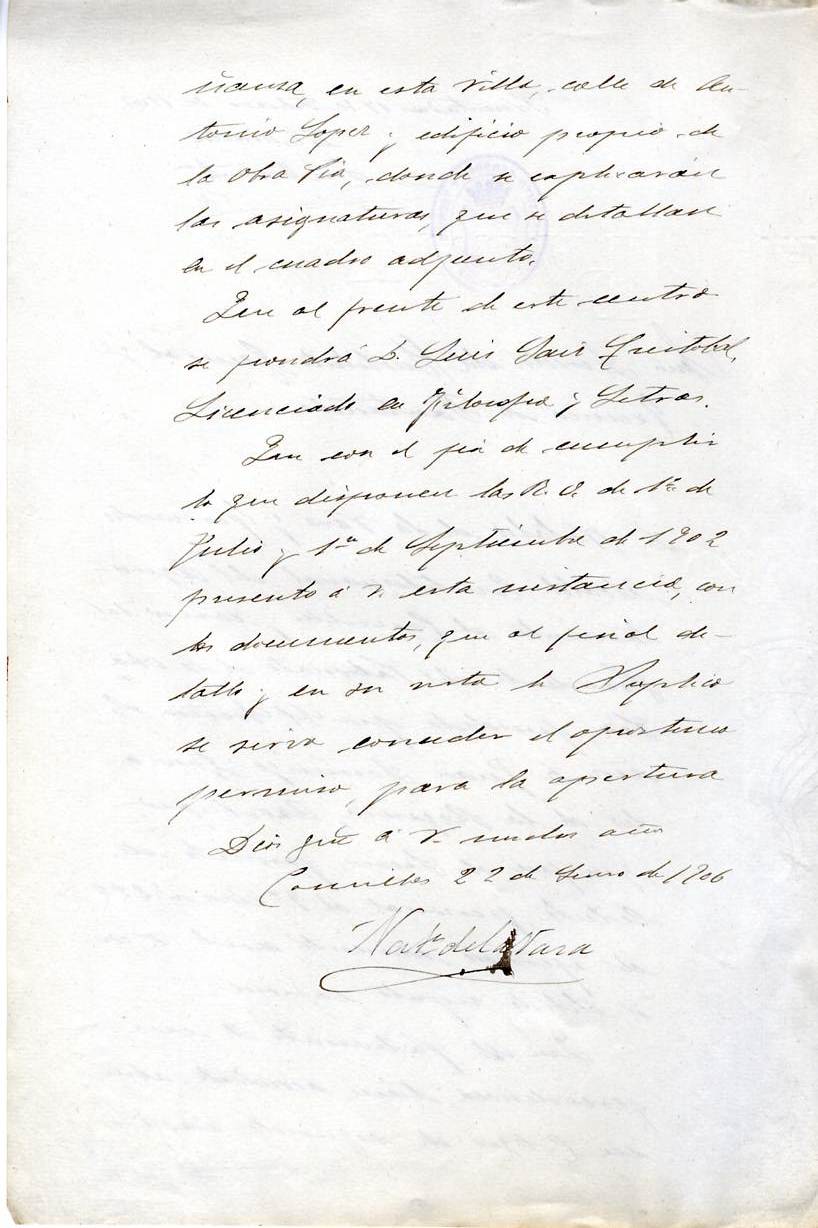 ñanza, en esta villa, calle de An-
tonio Lopez y edificio propio de
la Obra Pia, donde se esplicarán
las asignaturas, que se detallan
en el cuadro adjunto.
Que al frente de este centro
se pondrá D. Luis Saiz Cristobal,
Licenciado en Filosofia y Letras.
Que con el fin de cumplir
lo que disponen las R. O. de 1º de
Julio y 1º de Septiembre de 1902
presento á V. esta instancia, con
los documentos, que al final de-
tallo y en su vista le Suplico
se sirva conceder el oportuno
permiso, para la apertura
Dios gue á V. muchos años
Comillas 22 de Enero de 1906
de la Vara